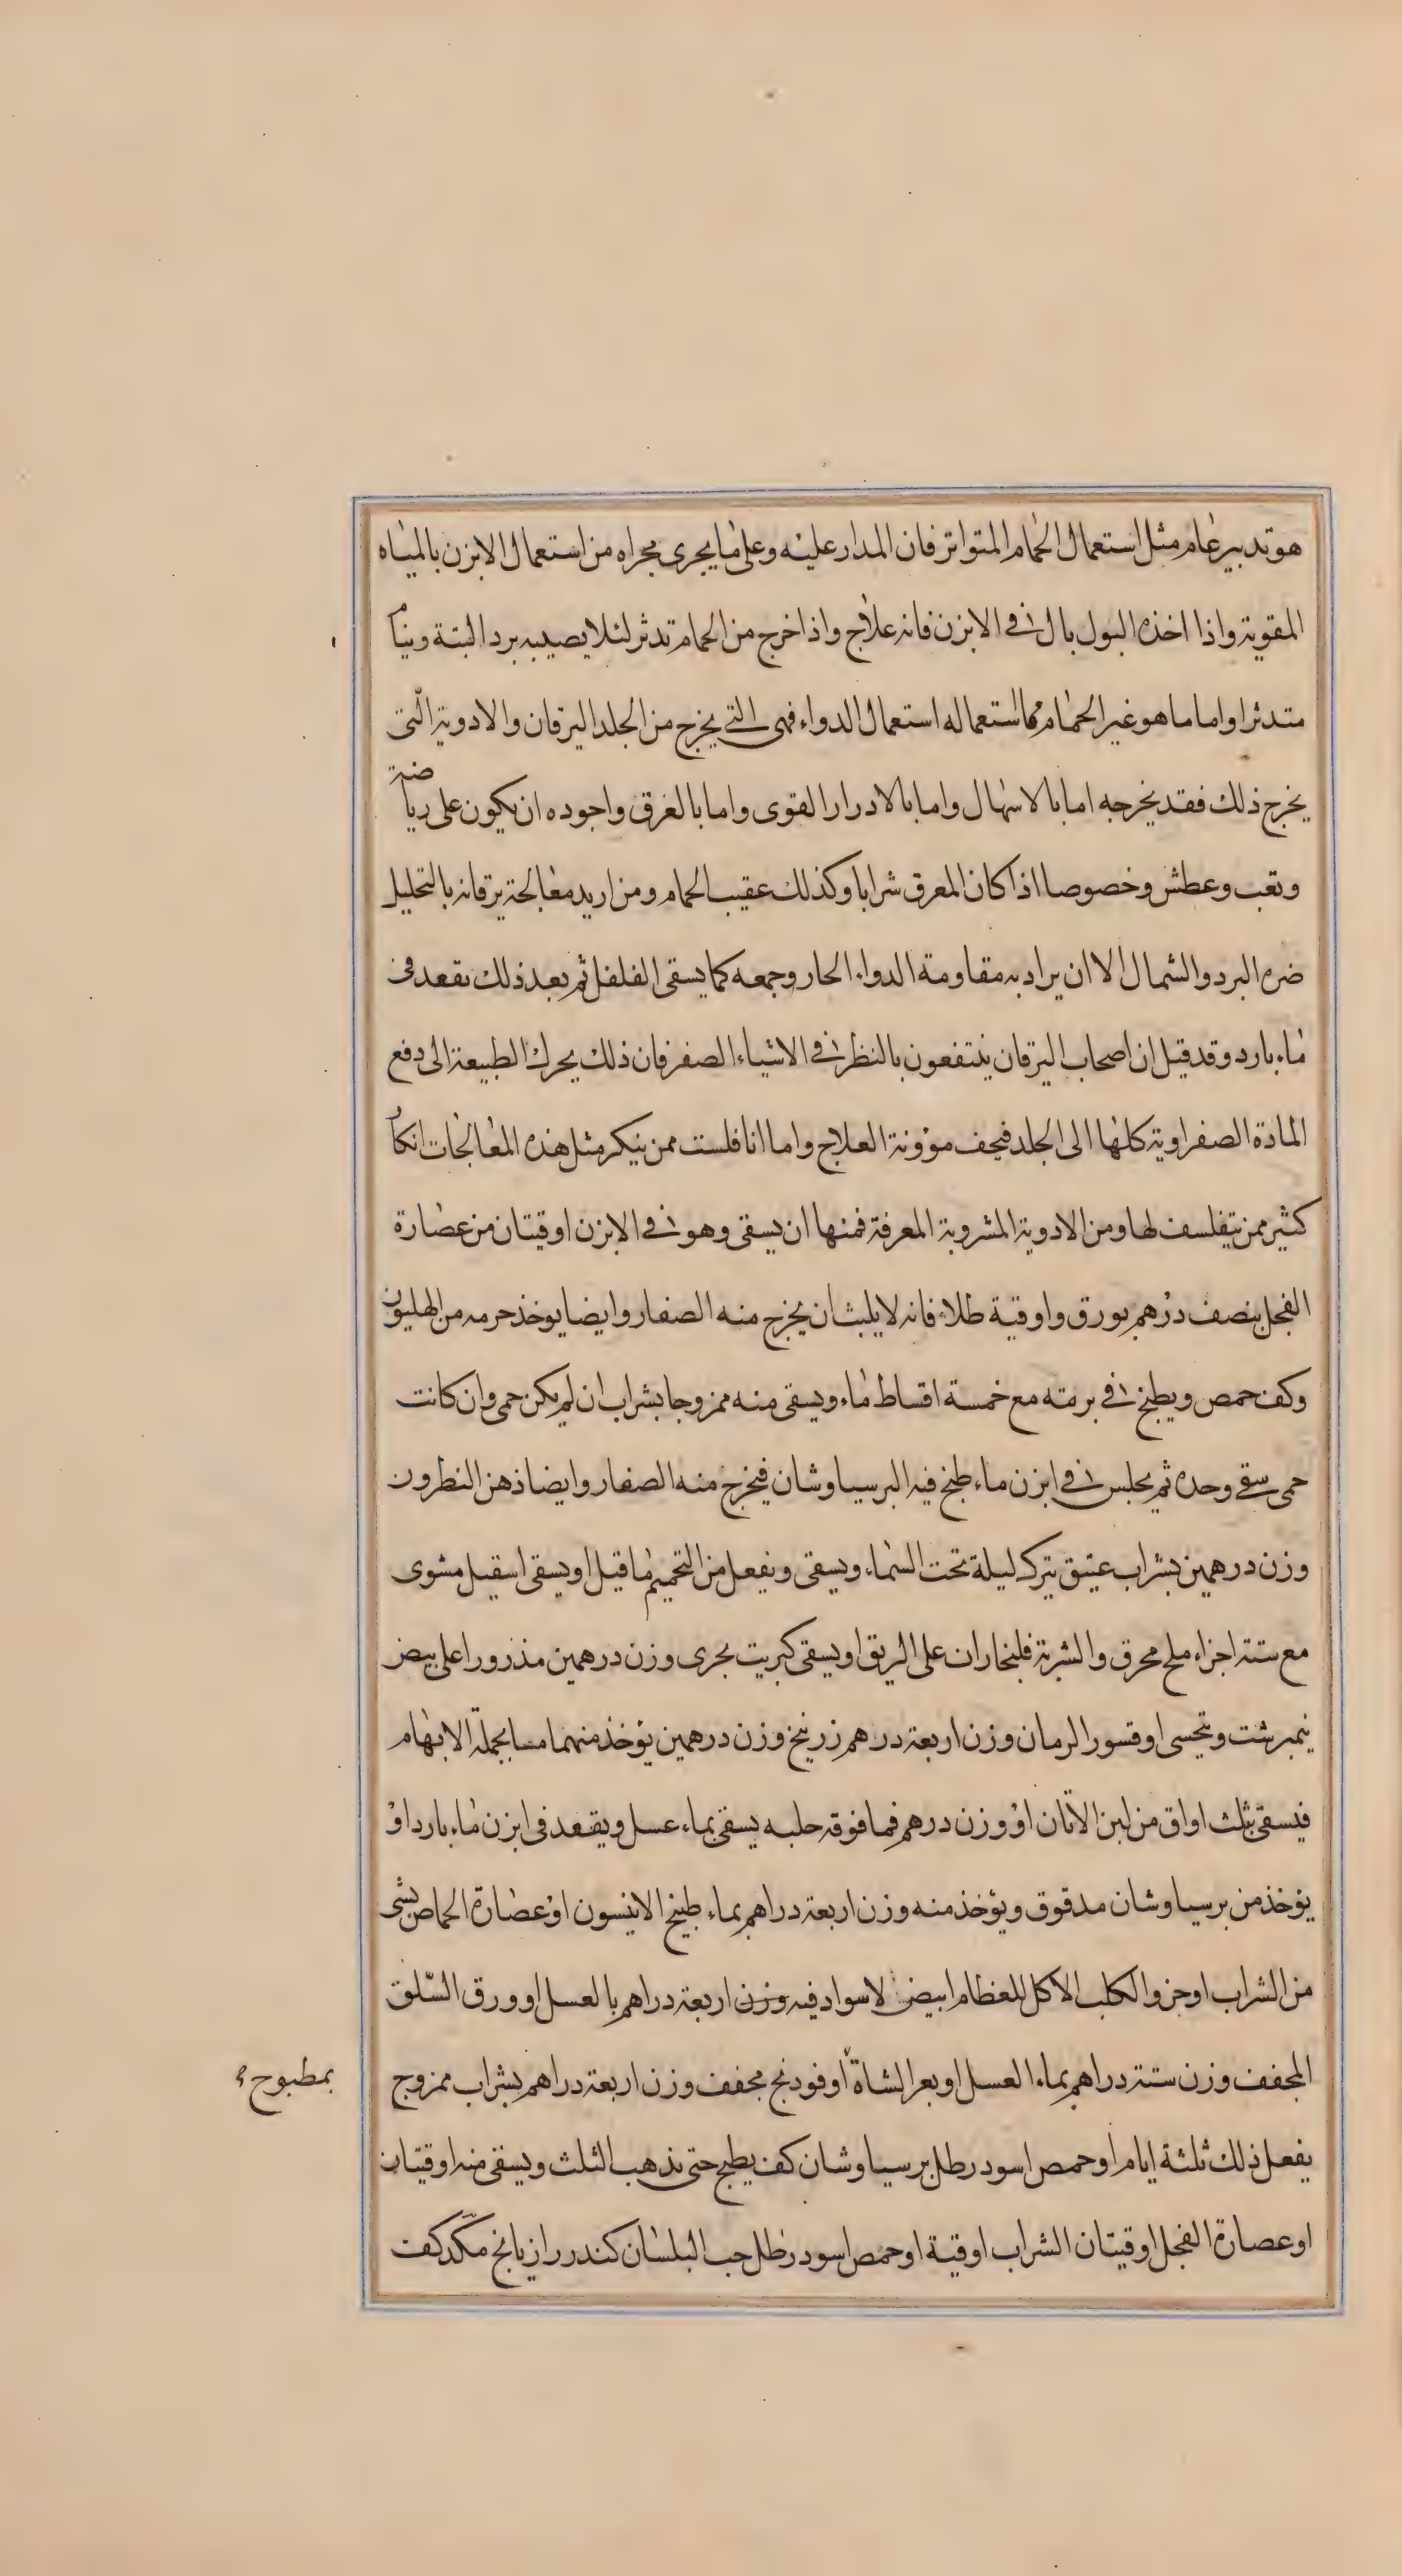 هو تدبير عام مثل استعمال الحمام المتواتر فان المدار عليه وعلى ما يجرى مجراه من استعمال الابزن بالمياه
المقوية واذا اخذه البول بال فى الابزن فانه علاج واذا خرج من الحمام تدثر لئلا يصيبه برد البتة وينام
متدثرا واما ما هو غير الحمام مما استعماله استعمال الدواء فهى التى يخرج من الجلد اليرقان والادوية التى
يخرج ذلك فقد يخرجه اما بالاسهال واما بالادرار القوى واما بالعرق واجوده ان يكون على رياضة
وتعب وعطش وخصوصا اذا كان المعرق شرابا وكذلك عقيب الحمام ومن اريد معالجة يرقانه بالتحليل
ضره البرد والشمال الا ان يراد به مقاومة الدواء الحار وجمعه كما يسقى الفلفل ثم بعد ذلك يقعد فى
ماء بارد وقد قيل ان اصحاب اليرقان ينتفعون بالنظر فى الاشياء الصفر فان ذلك يحرك الطبيعة الى دفع
المادة الصفراوية كلها الى الجلد فيخف مؤونة العلاج واما انا فلست ممن ينكر مثل هذه المعالجات انكار
كثير ممن يتفلسف لها ومن الادوية المشروبة المعرفة فمنها ان يسقى وهو فى الابزن اوقيتان من عصارة
الفجل بنصف درهم بورق واوقية طلاء فانه لا يلبث ان يخرج منه الصفار وايضا يوخذ حرمه من الهليون
وكف حمص ويطبخ فى برمته مع خمسة اقساط ماء ويسقى منه ممزوجا بشراب ان لم يكن حمى وان كانت
حمى سقى وحده ثم يجلس فى ابزن ماء طبخ فيه البرسياوشان فيخرج منه الصفار وايضا ذهن النطرون
وزن درهمين بشراب عتيق يترك ليلة تحت السماء ويسقى ويفعل من التحميم ما قيل او يسقى اسقيل مشوى
مع ستة اجزاء ملح محرق والشربة فلنجاران على الريق او يسقى كبريت بحرى وزن درهمين مذرورا على بيض
نيمبرشت ويتحسى او قسور الرمان وزن اربعة درهم زرنيخ وزن درهمين يؤخذ منهما مسا بجملة الابهام
فيسقى بثلث اواق من لبن الاتان او وزن درهم فما فوقه حلبه يسقى بماء عسل ويقعد فى ابزن ماء بارد او
يؤخذ من برسياوشان مدقوق ويؤخذ منه وزن اربعة دراهم بماء طبيخ الانيسون او عصارة الحماض بشى
من الشراب او خرو الكلب الاكل للعظام ابيض لا سواد فيه وزن اربعة دراهم بالعسل او ورق السلق
المجفف وزن ستة دراهم بماء العسل او بعر الشاة او فودنج مجفف وزن اربعة دراهم بشراب ممزوج
بمطبوح
يفعل ذلك ثلثة ايام او حمص اسود رطل برسياوشان كف يطبح حتى يذهب الثلث ويسقى منه اوقيتان
او عصارة الفجل اوقيتان الشراب اوقية او حمص اسود رطل حب البلسان كندر رازيانج مكد كف